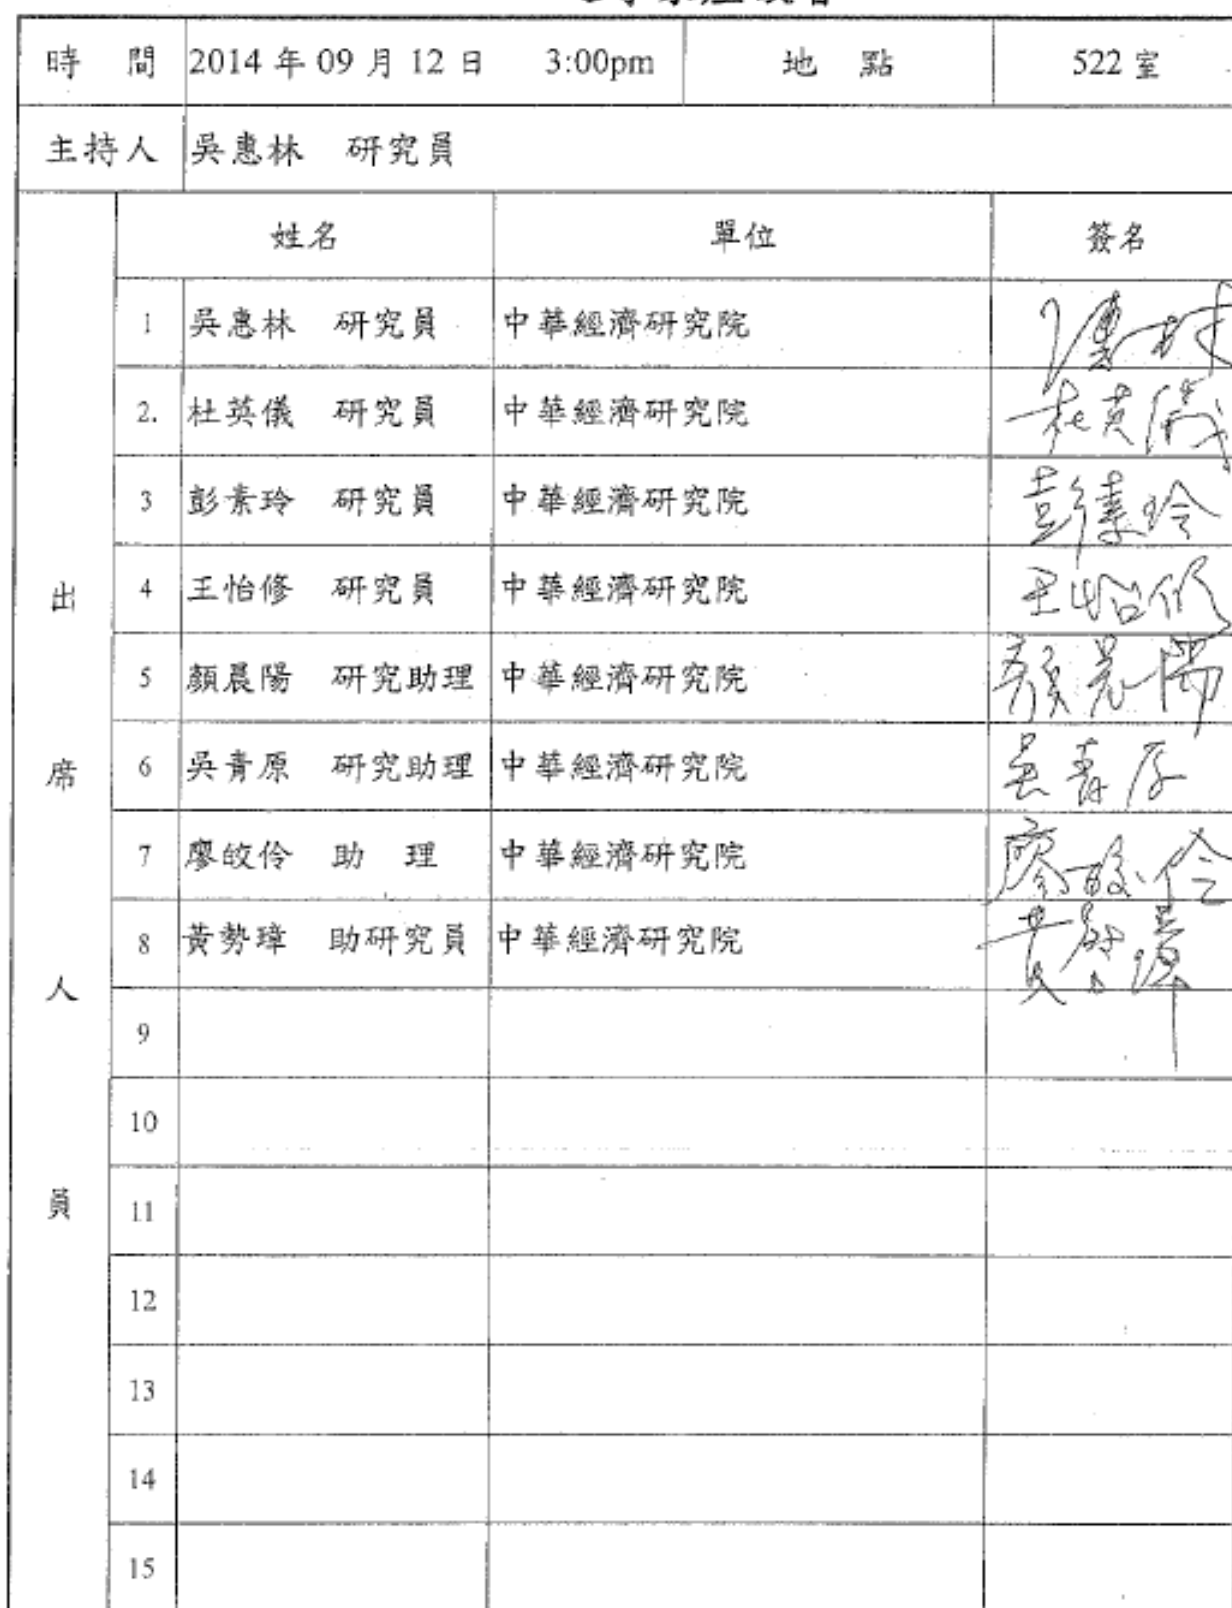 時 間 2014 年 09 月 12 日 3:00pm 地 點 522 室
主持人 吳惠林 研究員
姓名 單位 簽名
1 吳惠林 研究員 中華經濟研究院
2. 杜英儀 研究員 中華經濟研究院 杜英儀
3 彭素玲 研究員 中華經濟研究院 彭素玲
4 王怡修 研究員 中華經濟研究院 王怡修
5 顏晨陽 研究助理 中華經濟研究院 顏晨陽
6 吳青原 研究助理 中華經濟研究院 吳青原
7 廖皎伶 助 理 中華經濟研究院 廖皎伶
8 黃勢璋 助研究員 中華經濟研究院 黃勢璋
9
10
11
12
13
14
15
出席人員